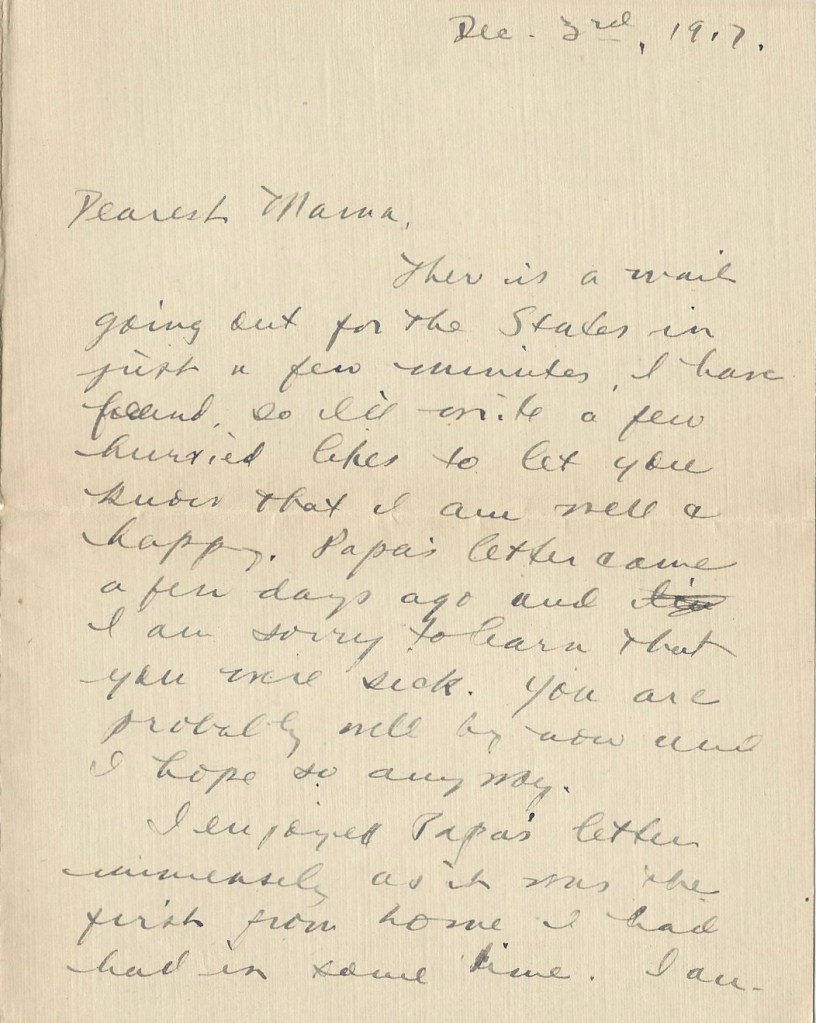 Dec. 3rd, 1917.
Dearest Mama,
Ther is a mail
going out for the States in
just a few minutes, I have
found, so I'll write a few
hurried lines to let you
know that I am well &
happy. Papa's letter came
a few days ago and
I am sorry to learn that
you were sick. You are
probably well by now and
I hope so anyway.
I enjoyed Papa's letter
immensely as it was the
first from home I had
had in some time. I an-